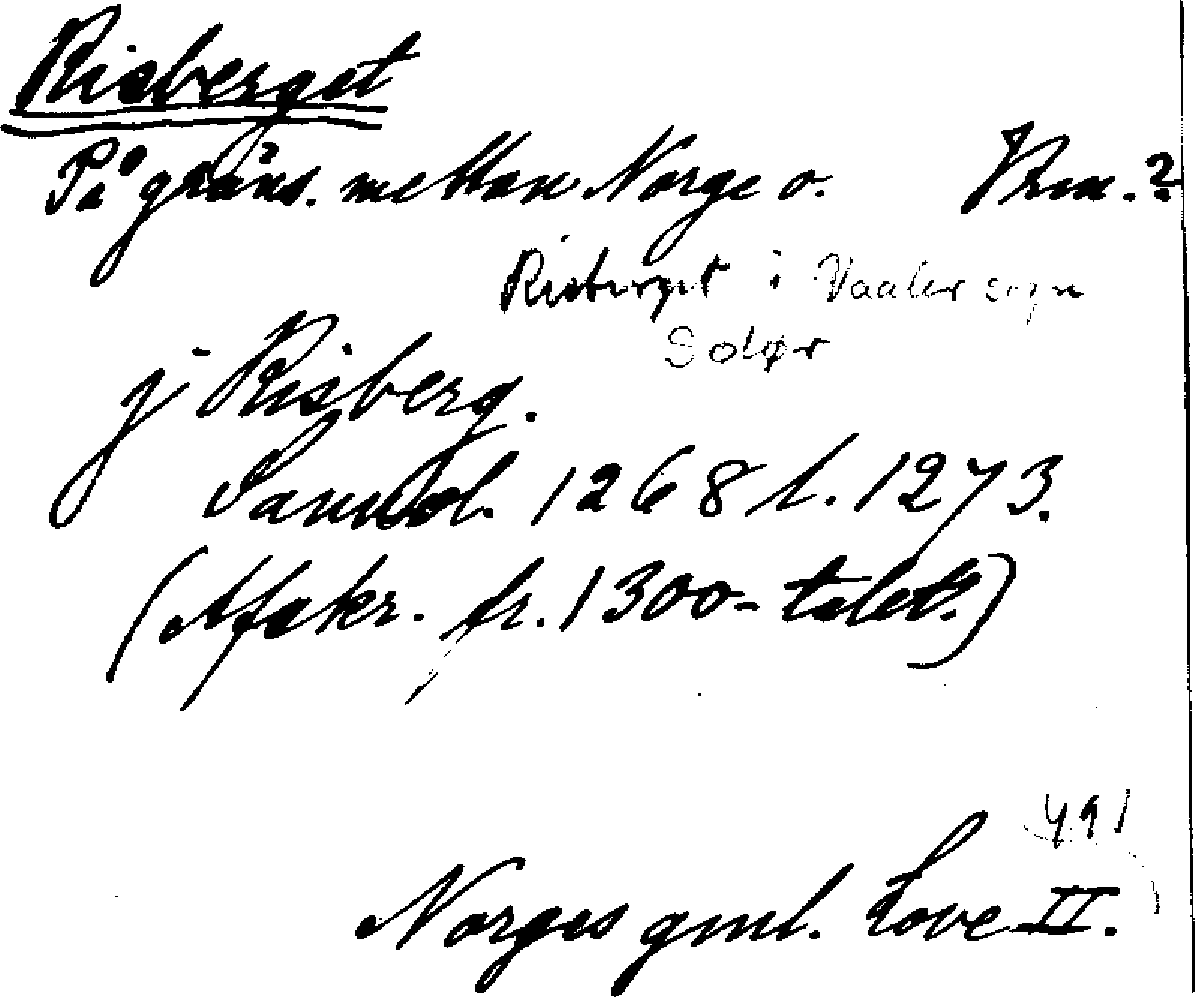 Risberget
På gräns. mellan Norge o. Vrm.?
Risberget i Vaaler sogn
Solør
j Risberg.
Samtid. 1268 l. 1273.
(Afskr. fr. 1300-talet.)
491
Norges gml. Love II.